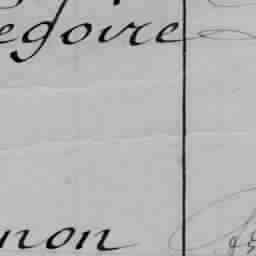 egoire
non